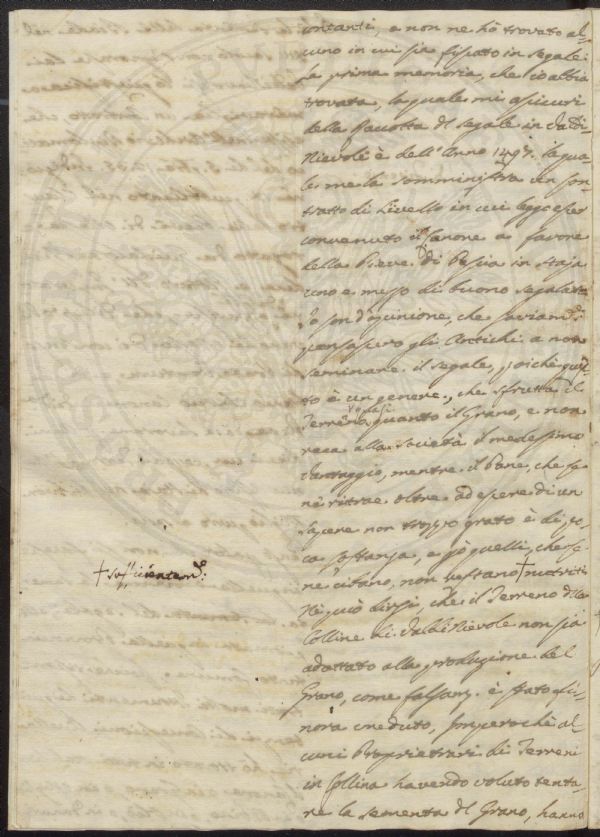 contanti, e non ne hò trovato al-
cuno in cui sia fissato in segale.
La prima memoria, che io abbia
trovata, la quale mi assicuri
della Raccolta di segale in Valdi
Nievole è dell'Anno 1497. la qua-
le me la somministra un Con
tratto di Livello in cui leggo esser
convenuto il Canone a favore
della Pieve di Pescia in staja
uno e mezzo di buono segalato
Io son d'opinione, che saviam.e
pensassero gli Antichi a non
seminare il segale, poichè ques
to è un genere, che sfrutta il
Terreno quasi quanto il Grano, e non
reca alla società il medesimo
vantaggio, mentre il Pane, che se
ne ritrae oltre ad essere di un
sapere non troppo grato è di po-
ca sostanza, e p.ò quelli, che se
ne cibano, non restano + nutriti
+ sufficientem.e:
Nè può dirsi, che il Terreno d.lla
Colline di Valdi Nievole non sia
adattato alla produzione del
Grano, come falsam. è stato fi-
nora creduto, Imperochè al
cuni Proprietari di Terreni
in Collina havendo voluto tenta-
re la sementa di Grano, hanno